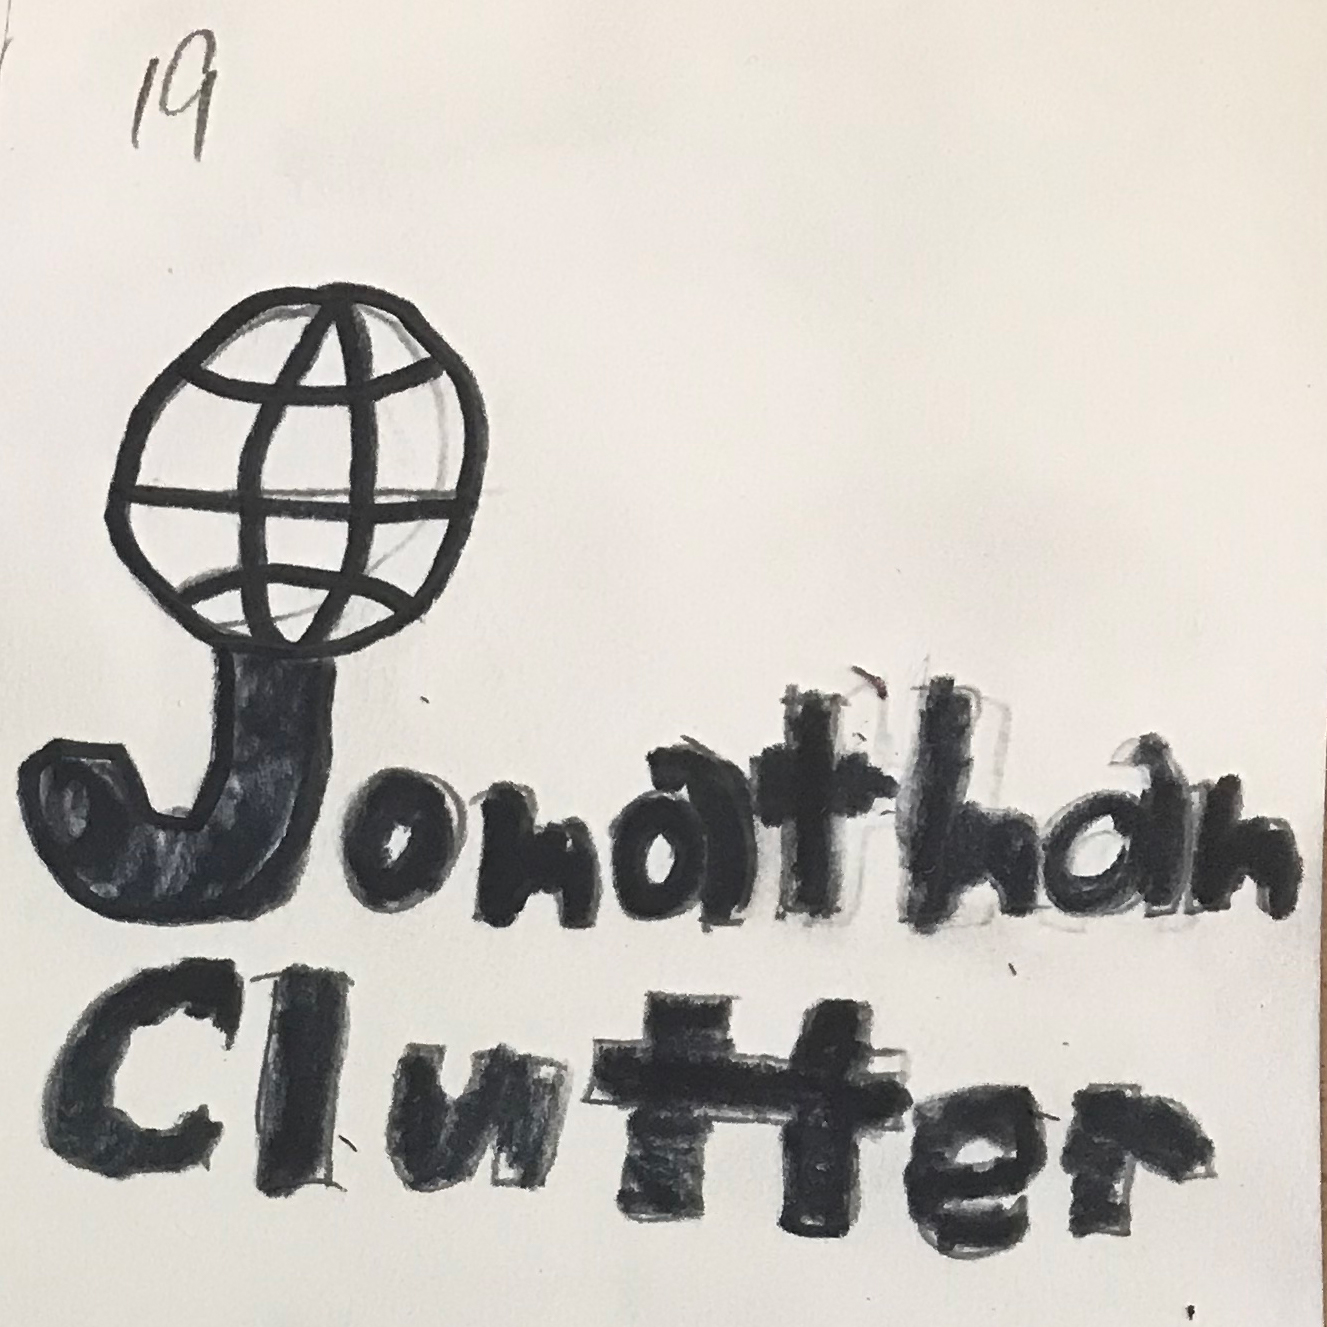 19
Jonathan
Clutter